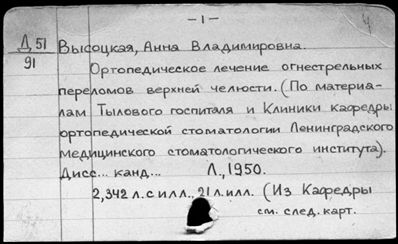 - 1 -
4
Д 51
91
Высоцкая, Анна Владимировна.
Ортопедическое лечение огнестрельных
переломов верхней челюсти. (По материа-
лам Тылового госпиталя и Клиники кафедры
ортопедической стоматологии Ленинградского
медицинского стоматологического института).
Дисс... канд... Л., 1950.
2,342 л. с илл., 21 л. илл. (Из Кафедры
см. след. карт.